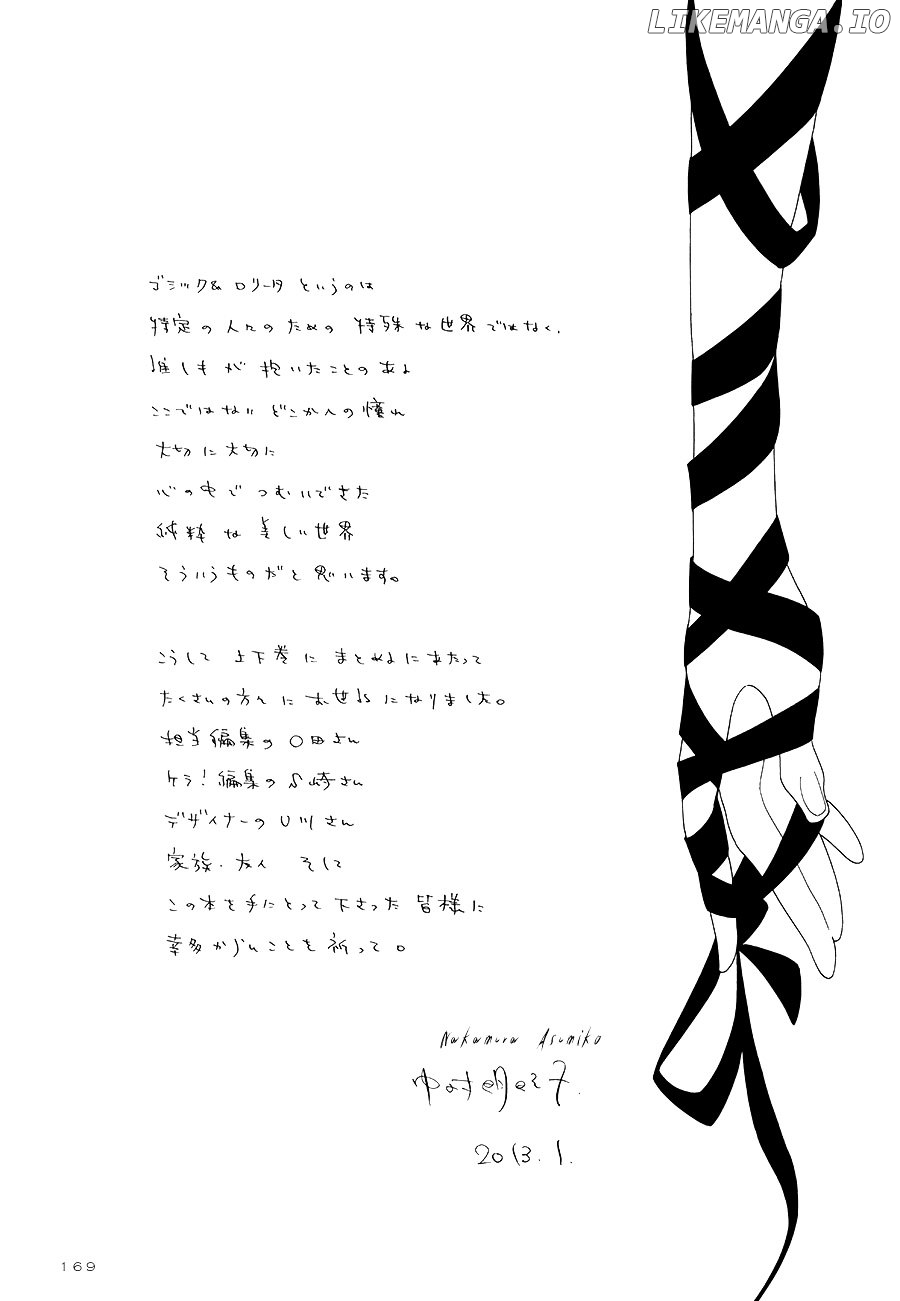 LIKEMANGA.IO
ゴシック& ロリータ というのは
特定の人々のための 特殊な世界ではなく、
誰しもが 抱いたことのある
ここではない どこかへの憧れ
大切に大切に
心の中で つむいできた
純粋な 美しい世界
そういうものだと 思います。
こうして 上下巻に まとめるにあたって
たくさんの方々に お世話になりました。
担当編集の O田さん
ケラ!編集の S崎さん
デザイナーの U川さん
家族・友人 そして
この本を手にとって下さった 皆様に
幸多からんことを祈って。
Nakamura Asumiko
中村明日美子.
2013.1.
169